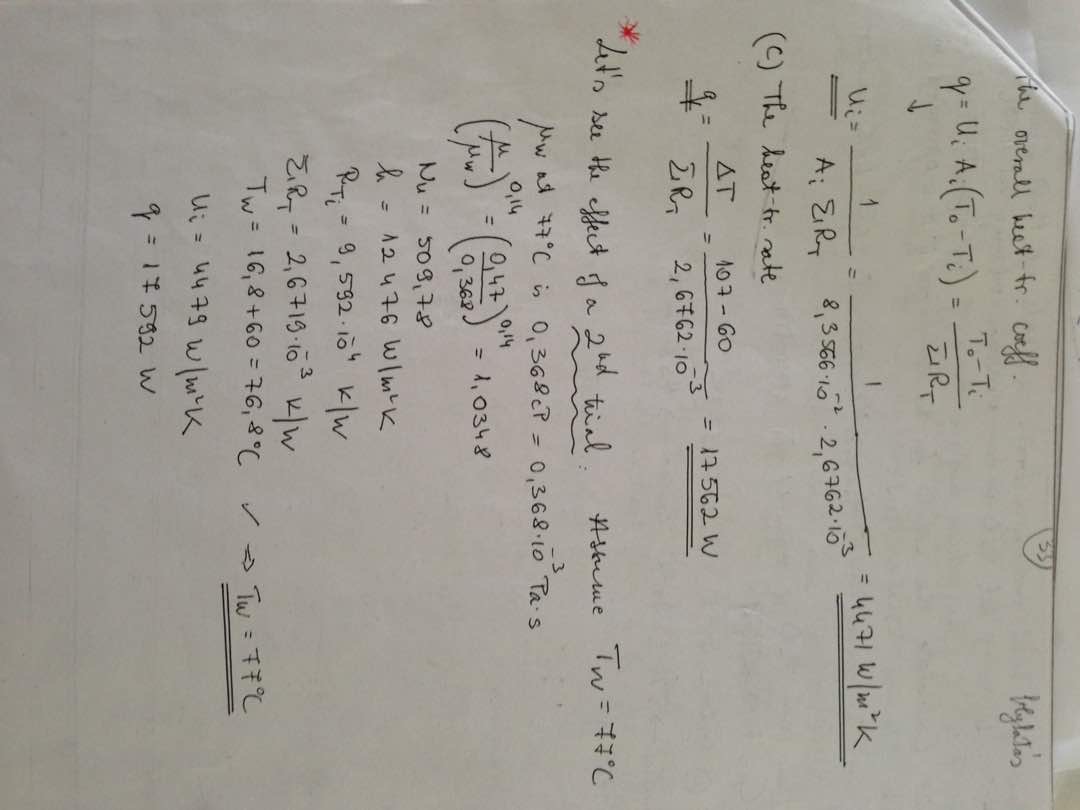 33
The overall heat tr. coeff.
q = Ui Ai (To - Ti) = (To - Ti) / ΣRT
↓
Ui = 1 / (Ai ΣRT) = 1 / (8,3566·10⁻² · 2,6762·10⁻³) = 4471 W/m²K
(C) The heat-tr. rate
q = ΔT / ΣRT = (107 - 60) / (2,6762·10⁻³) = 17562 W
* Let's see the effect of a 2nd trial: Assume Tw = 77°C
μw at 77°C is 0,368cP = 0,368·10⁻³ Pa·s
(μ/μw)^0,14 = (0,47/0,368)^0,14 = 1,0348
Nu = 509,78
h = 12476 W/m²K
RTi = 9,592·10⁻⁴ K/W
ΣRT = 2,6719·10⁻³ K/W
Tw = 16,8+60 = 76,8°C ✓ ⇒ Tw = 77°C
Ui = 4479 W/m²K
q = 17592 W